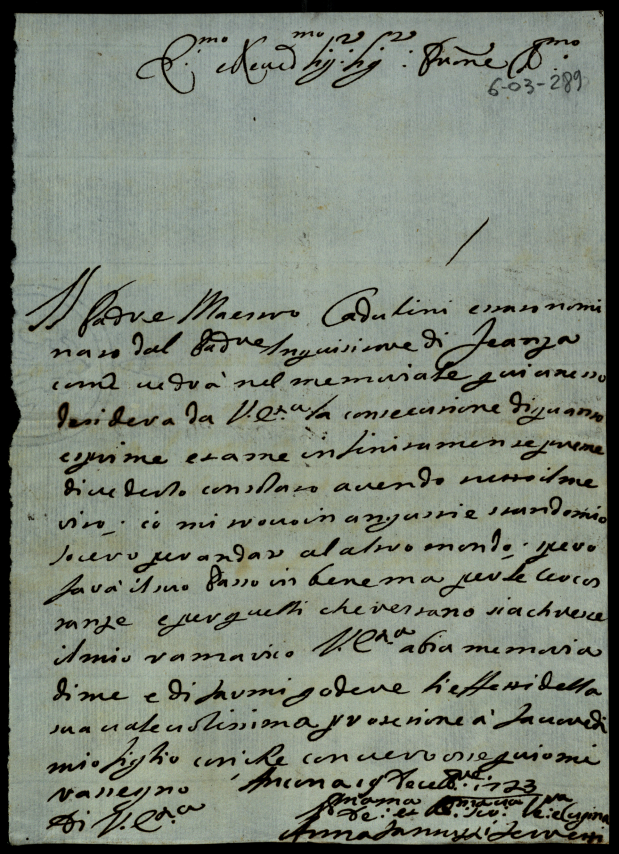 E.mo e Reued.mo Sig.r Sig.r Prōne C.mo
6-03-289
Il Padre Maestro Cadolini è stato nomi
nato dal Padre Inquisitore di Faenza
come uedrà nel memoriale qui anesso
desidera da V. E.za la consecuzione di quanto
esprime et a me infinitamente preme
di uederlo consolato auendo tutto il me
rito. io mi trouo in angustie stando mio
socero per andar al altro mondo. spero
farà il suo Passo in bene ma per le circos
tanze e per quelli che restano si achresce
il mio ramarico V. E.za abia memoria
di me e di farmi godere li effetti della
sua ualeuolissima protezione à fauore di
mio figlio con che con uero osequio mi
rassegno Ancona 19 Decebre 1723
Di V. E.za
Anna